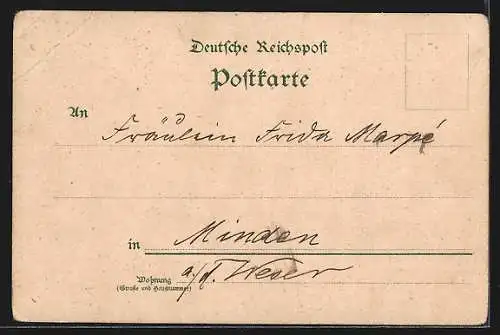 Deutsche Reichspost
Postkarte
An
Fräulein Frida Marpé
in Minden
Wohnung a/d. Weser
(Straße und Hausnummer)